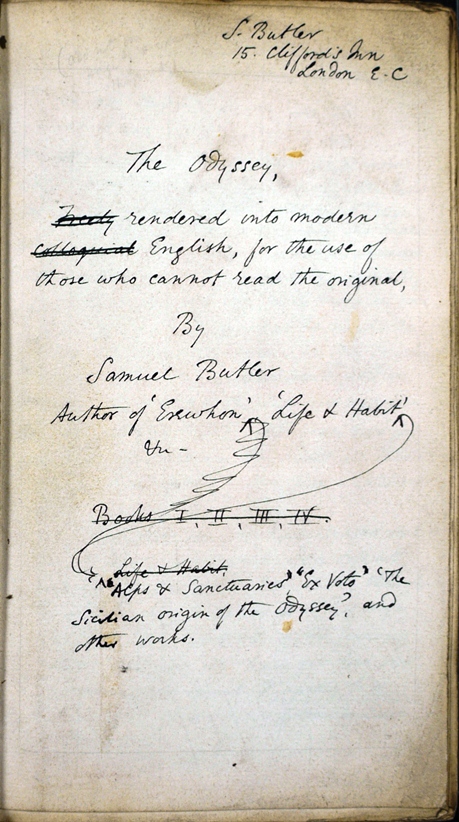 S. Butler
15. Clifford's Inn
London E-C
The Odyssey,
Freely rendered into modern
colloquial English, for the use of
those who cannot read the original,
By
Samuel Butler
Author of 'Erewhon', 'Life & Habit'
&c -
Books I, II, III, IV.
Life & Habit,
"Alps & Sanctuaries" "Ex Voto" "The
Sicilian origin of the Odyssey", and
other works.